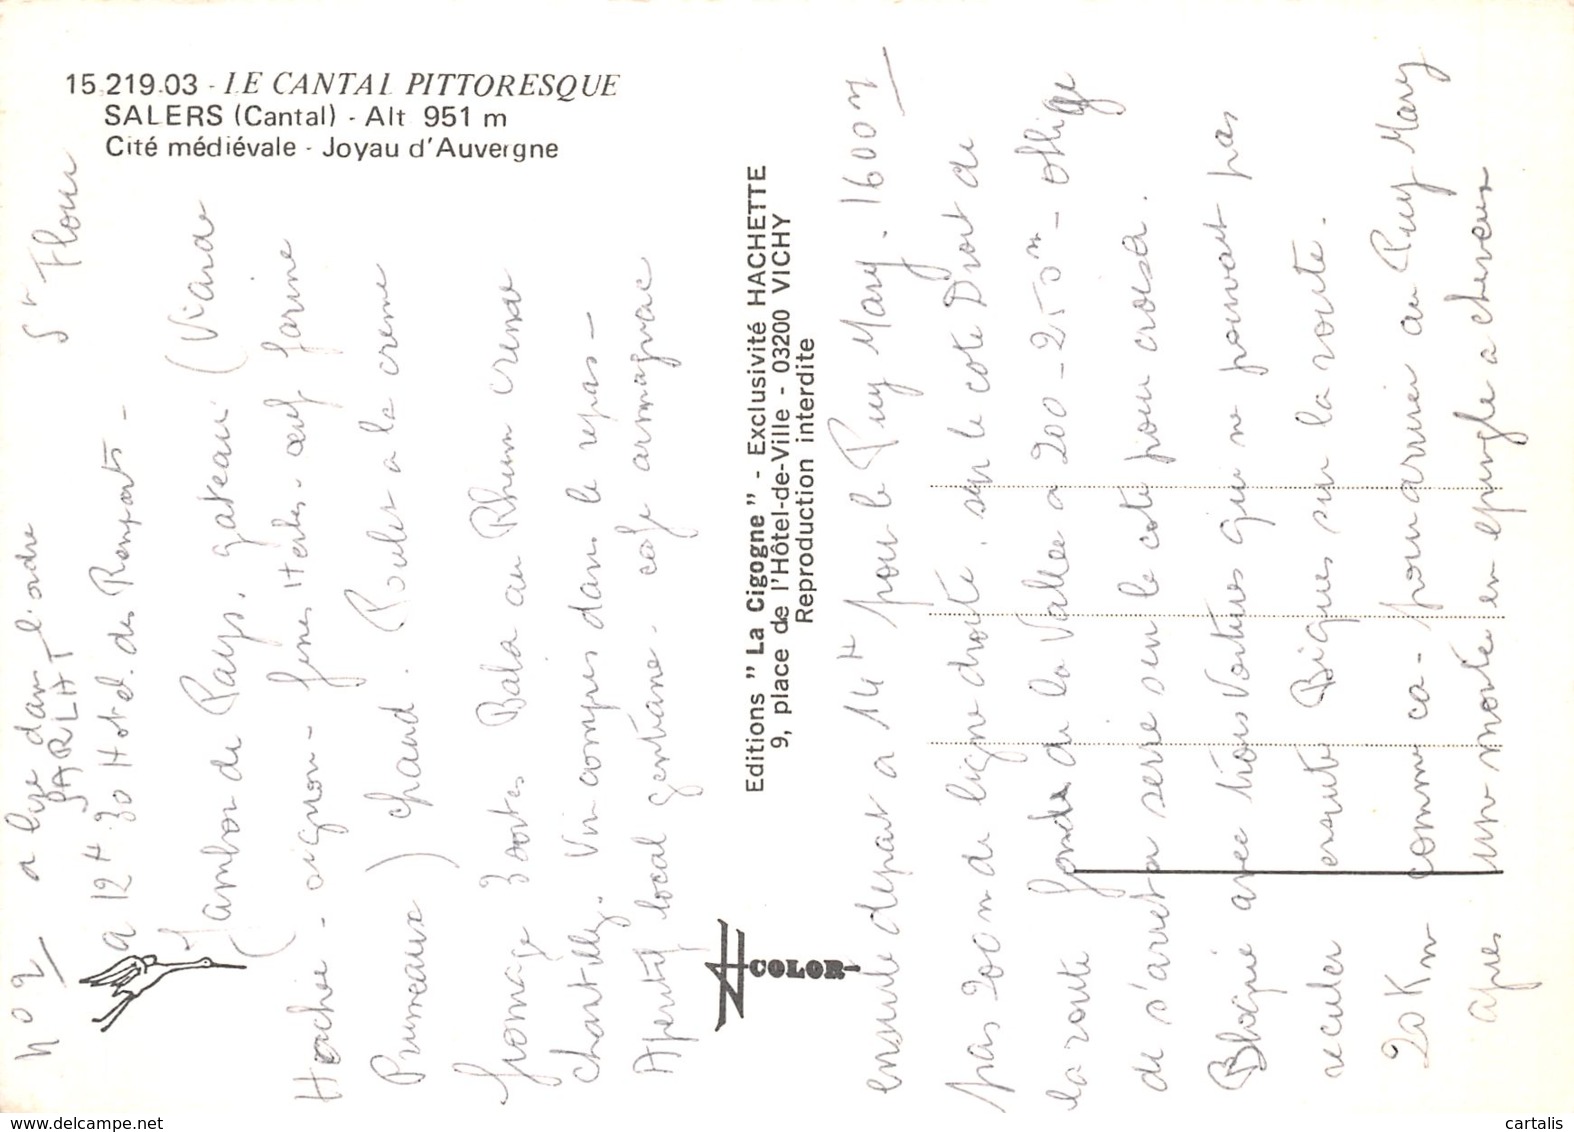 15.219.03 - LE CANTAL PITTORESQUE
SALERS (Cantal) - Alt 951 m
Cité médiévale - Joyau d'Auvergne
Editions " La Cigogne " - Exclusivité HACHETTE
9, place de l'Hôtel-de-Ville - 03200 VICHY
Reproduction interdite
COLOR
no 2 a lire dans l'ordre
SARLAT St Flour
a 12 H 30 Hotel des Remparts -
Jambon de Pays, gateau (Viande
Hachée - oignon - fines Herbes - œuf farine
Pruneaux) chaud. Poulet a la creme
fromage 3 sortes Baba au Rhum creme
chantilly. Vin compris dans le repas -
Aperitif local gentiane - cafe armagnac
ensuite depart a 14 H pour le Puy Mary. 1600 m
pas 200 m de ligne droite, sur le cote Droit de
la route fond de la Vallee a 200 - 250 m - oblige
de s'arreter serre sur le cote pour croiser.
Bloqué avec trois Voitures qui ne pouvait pas
reculer ensuite Biques sur la route.
20 Km comme ca - pour arriver au Puy Mary
apres une montee en epingle a cheveux
www.delcampe.net
cartalis